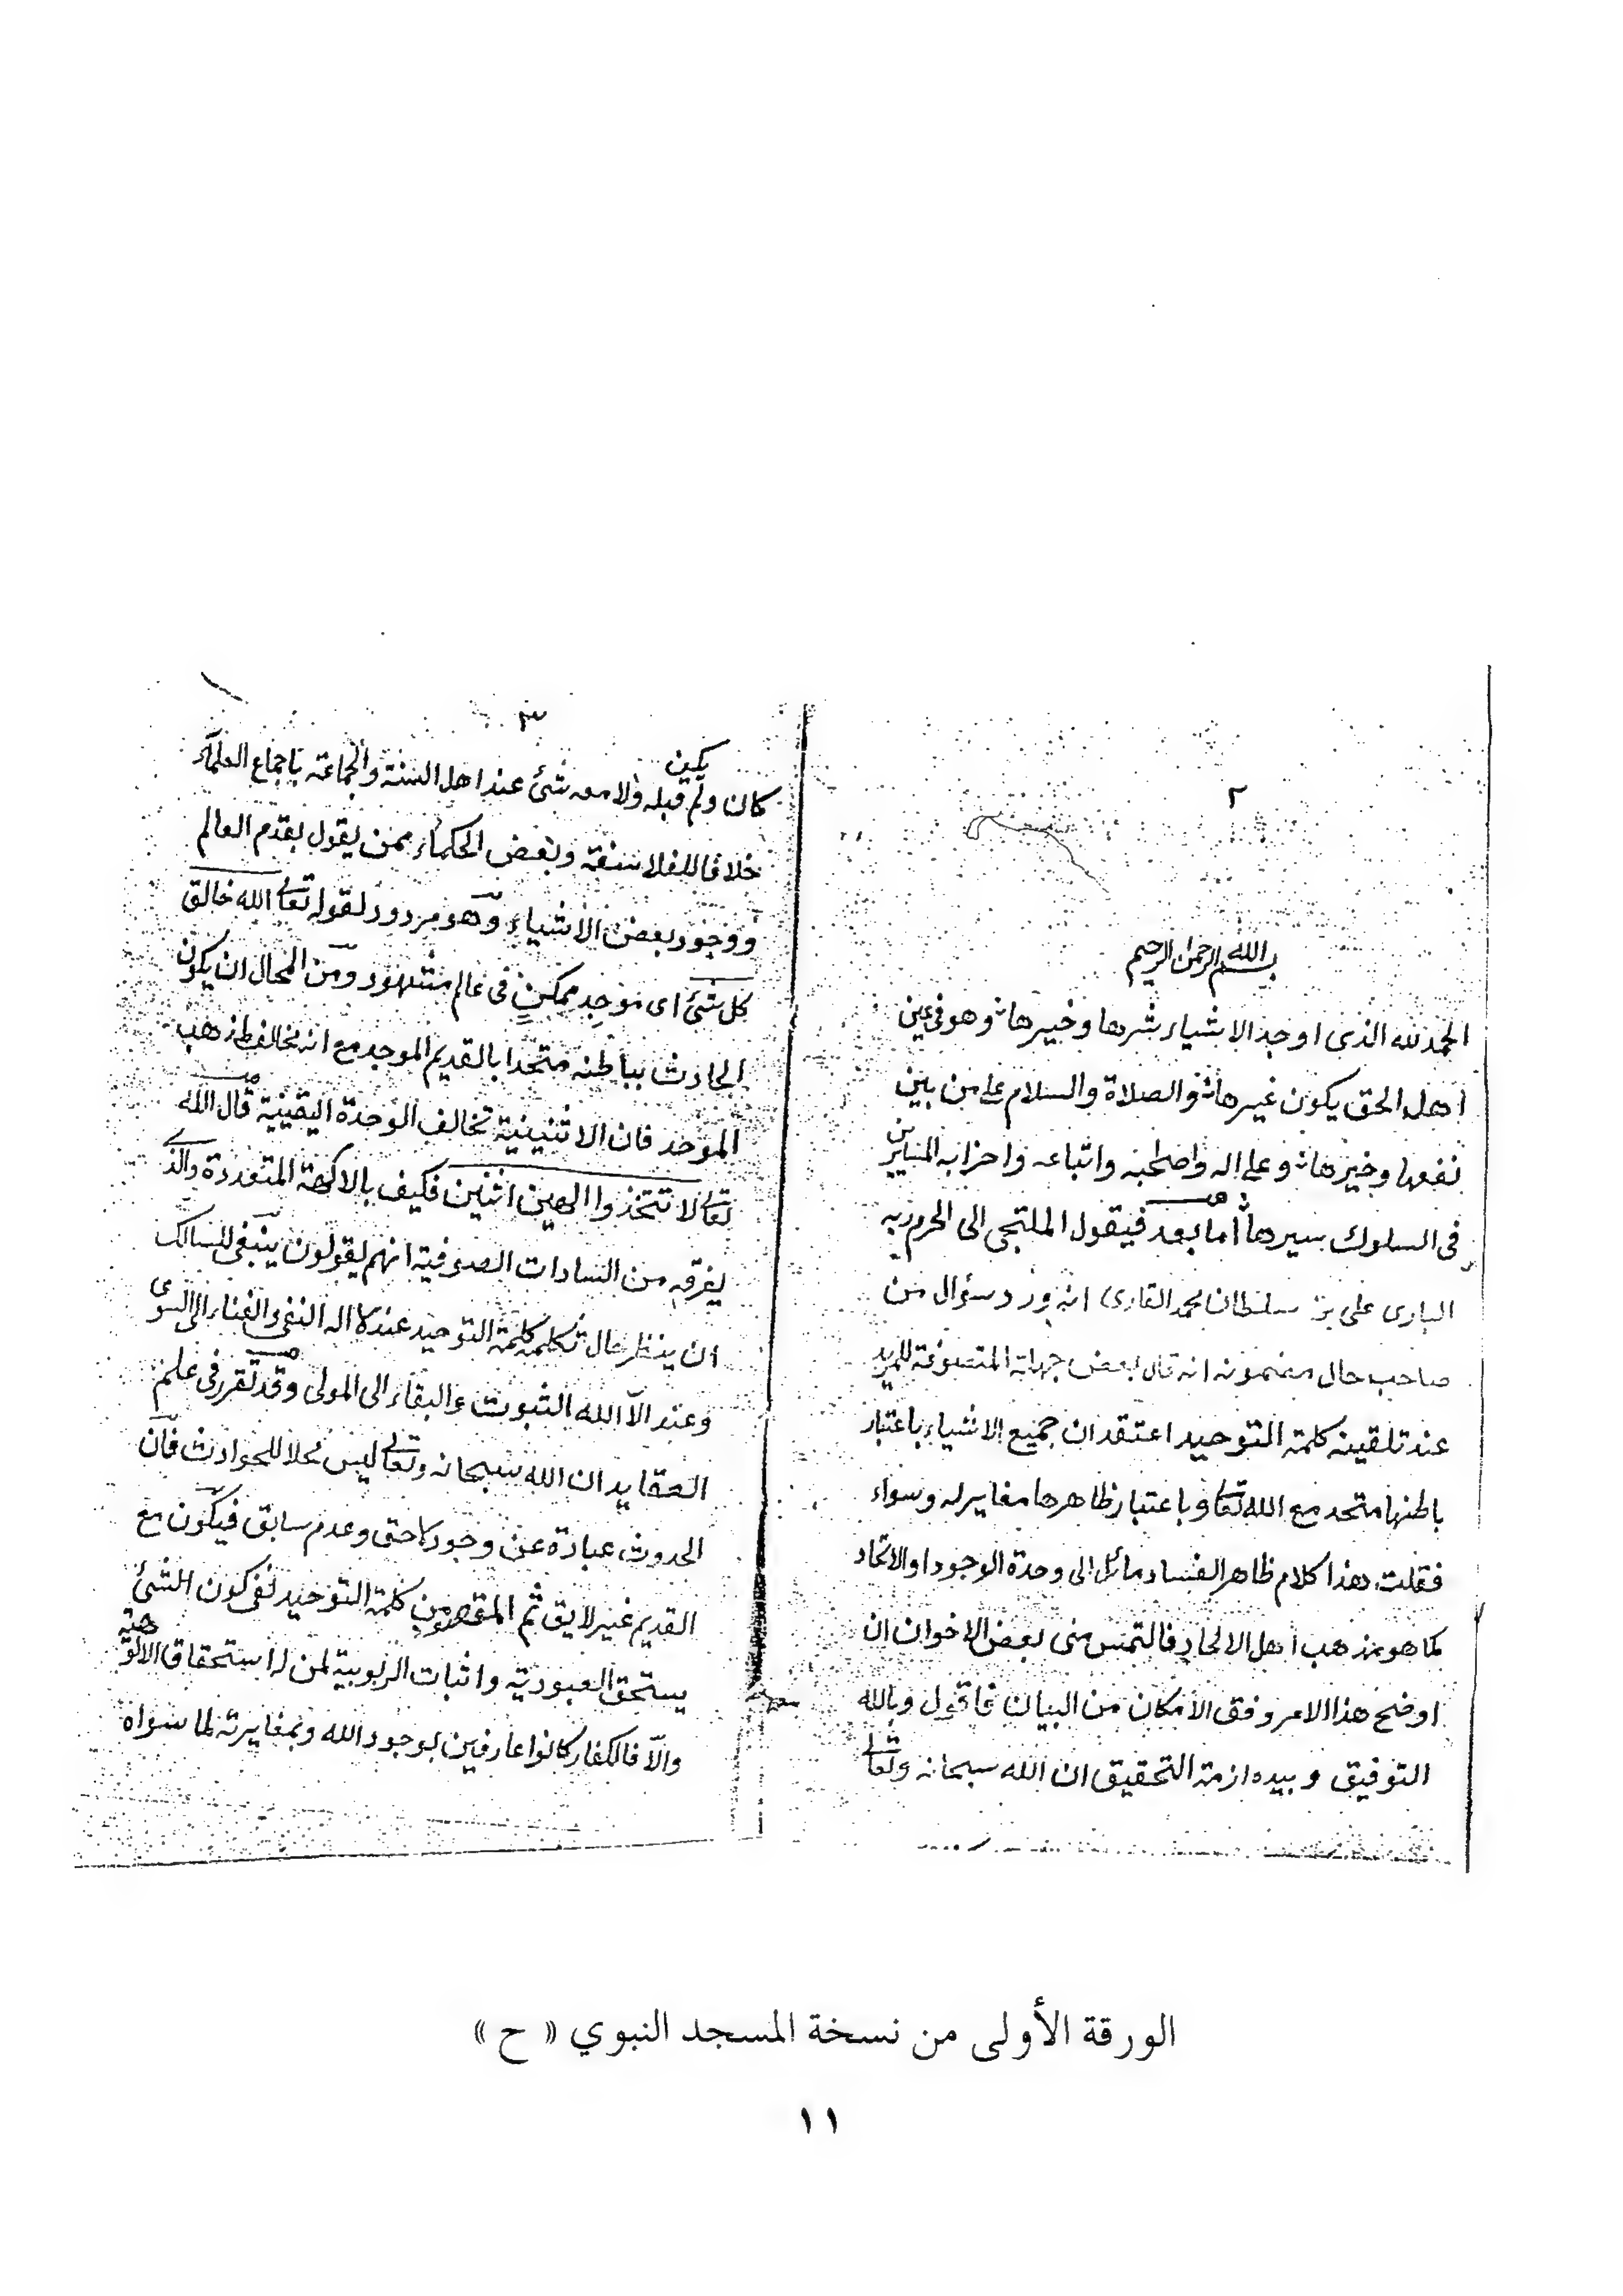 ٢
بسم الله الرحمن الرحيم
الحمد لله الذى اوجد الاشياء شرها وخيرها وهو فى عين
اهل الحق يكون غيرها والصلاة والسلام على من بين
نفعها وخيرها وعلى اله واصحبه واتباعه واحزابه
فى السلوك بسيرها اما بعد فيقول الملتجى الى الحرم ربه
البارى على بن سلطان محمد القارى انه ورد سؤال من
صاحب حال مضمونه انه قال بعض جهلة المتصوفة للمريد
عند تلقينه كلمة التوحيد اعتقد ان جميع الاشياء باعتبار
باطنها متحد مع الله تعالى وباعتبار ظاهرها مغاير له وسواه
فقلت هذا كلام ظاهر الفساد مائل الى وحدة الوجود او الاتحاد
كما هو مذهب اهل الالحاد فالتمس منى بعض الاخوان ان
اوضح هذا الامر وفق الامكان من البيان فاقول وبالله
التوفيق وبيده ازمة التحقيق ان الله سبحانه وتعالى
٣
كان ولم يكن قبله ولا معه شئ عند اهل السنة والجماعة باجماع العلماء
خلافا للفلاسفة وبعض الحكماء ممن يقول بقدم العالم
ووجود بعض الاشياء وهو مردود لقوله تعالى الله خالق
كل شئ اى موجد ممكن فى عالم مشهود ومن المحال ان يكون
الحادث بباطنه متحدا بالقديم الموجد مع انه مخالف لمذهب
الموحد فان الاثنينية تخالف الوحدة اليقينية قال الله
تعالى لا تتخذوا الهين اثنين فكيف بالالهة المتعددة والذى
يعرفه من السادات الصوفية انهم يقولون ينبغى للسالك
ان ينظر حال تكلمه كلمة التوحيد عند لا اله النفى والفناء الى السوى
وعند الا الله الثبوت والبقاء الى المولى وقد تقرر فى علم
العقايد ان الله سبحانه وتعالى ليس محلا للحوادث فان
الحدوث عبارة عن وجود لاحق وعدم سابق فيكون مع
القديم غير لايق ثم المقصود من كلمة التوحيد نفى كون الشئ
يستحق العبودية واثبات الربوبية لمن له استحقاق الالوهية
والا فالكفار كانوا عارفين بوجود الله وبمغايرته لما سواه
الورقة الأولى من نسخة المسجد النبوي « ح »
١١